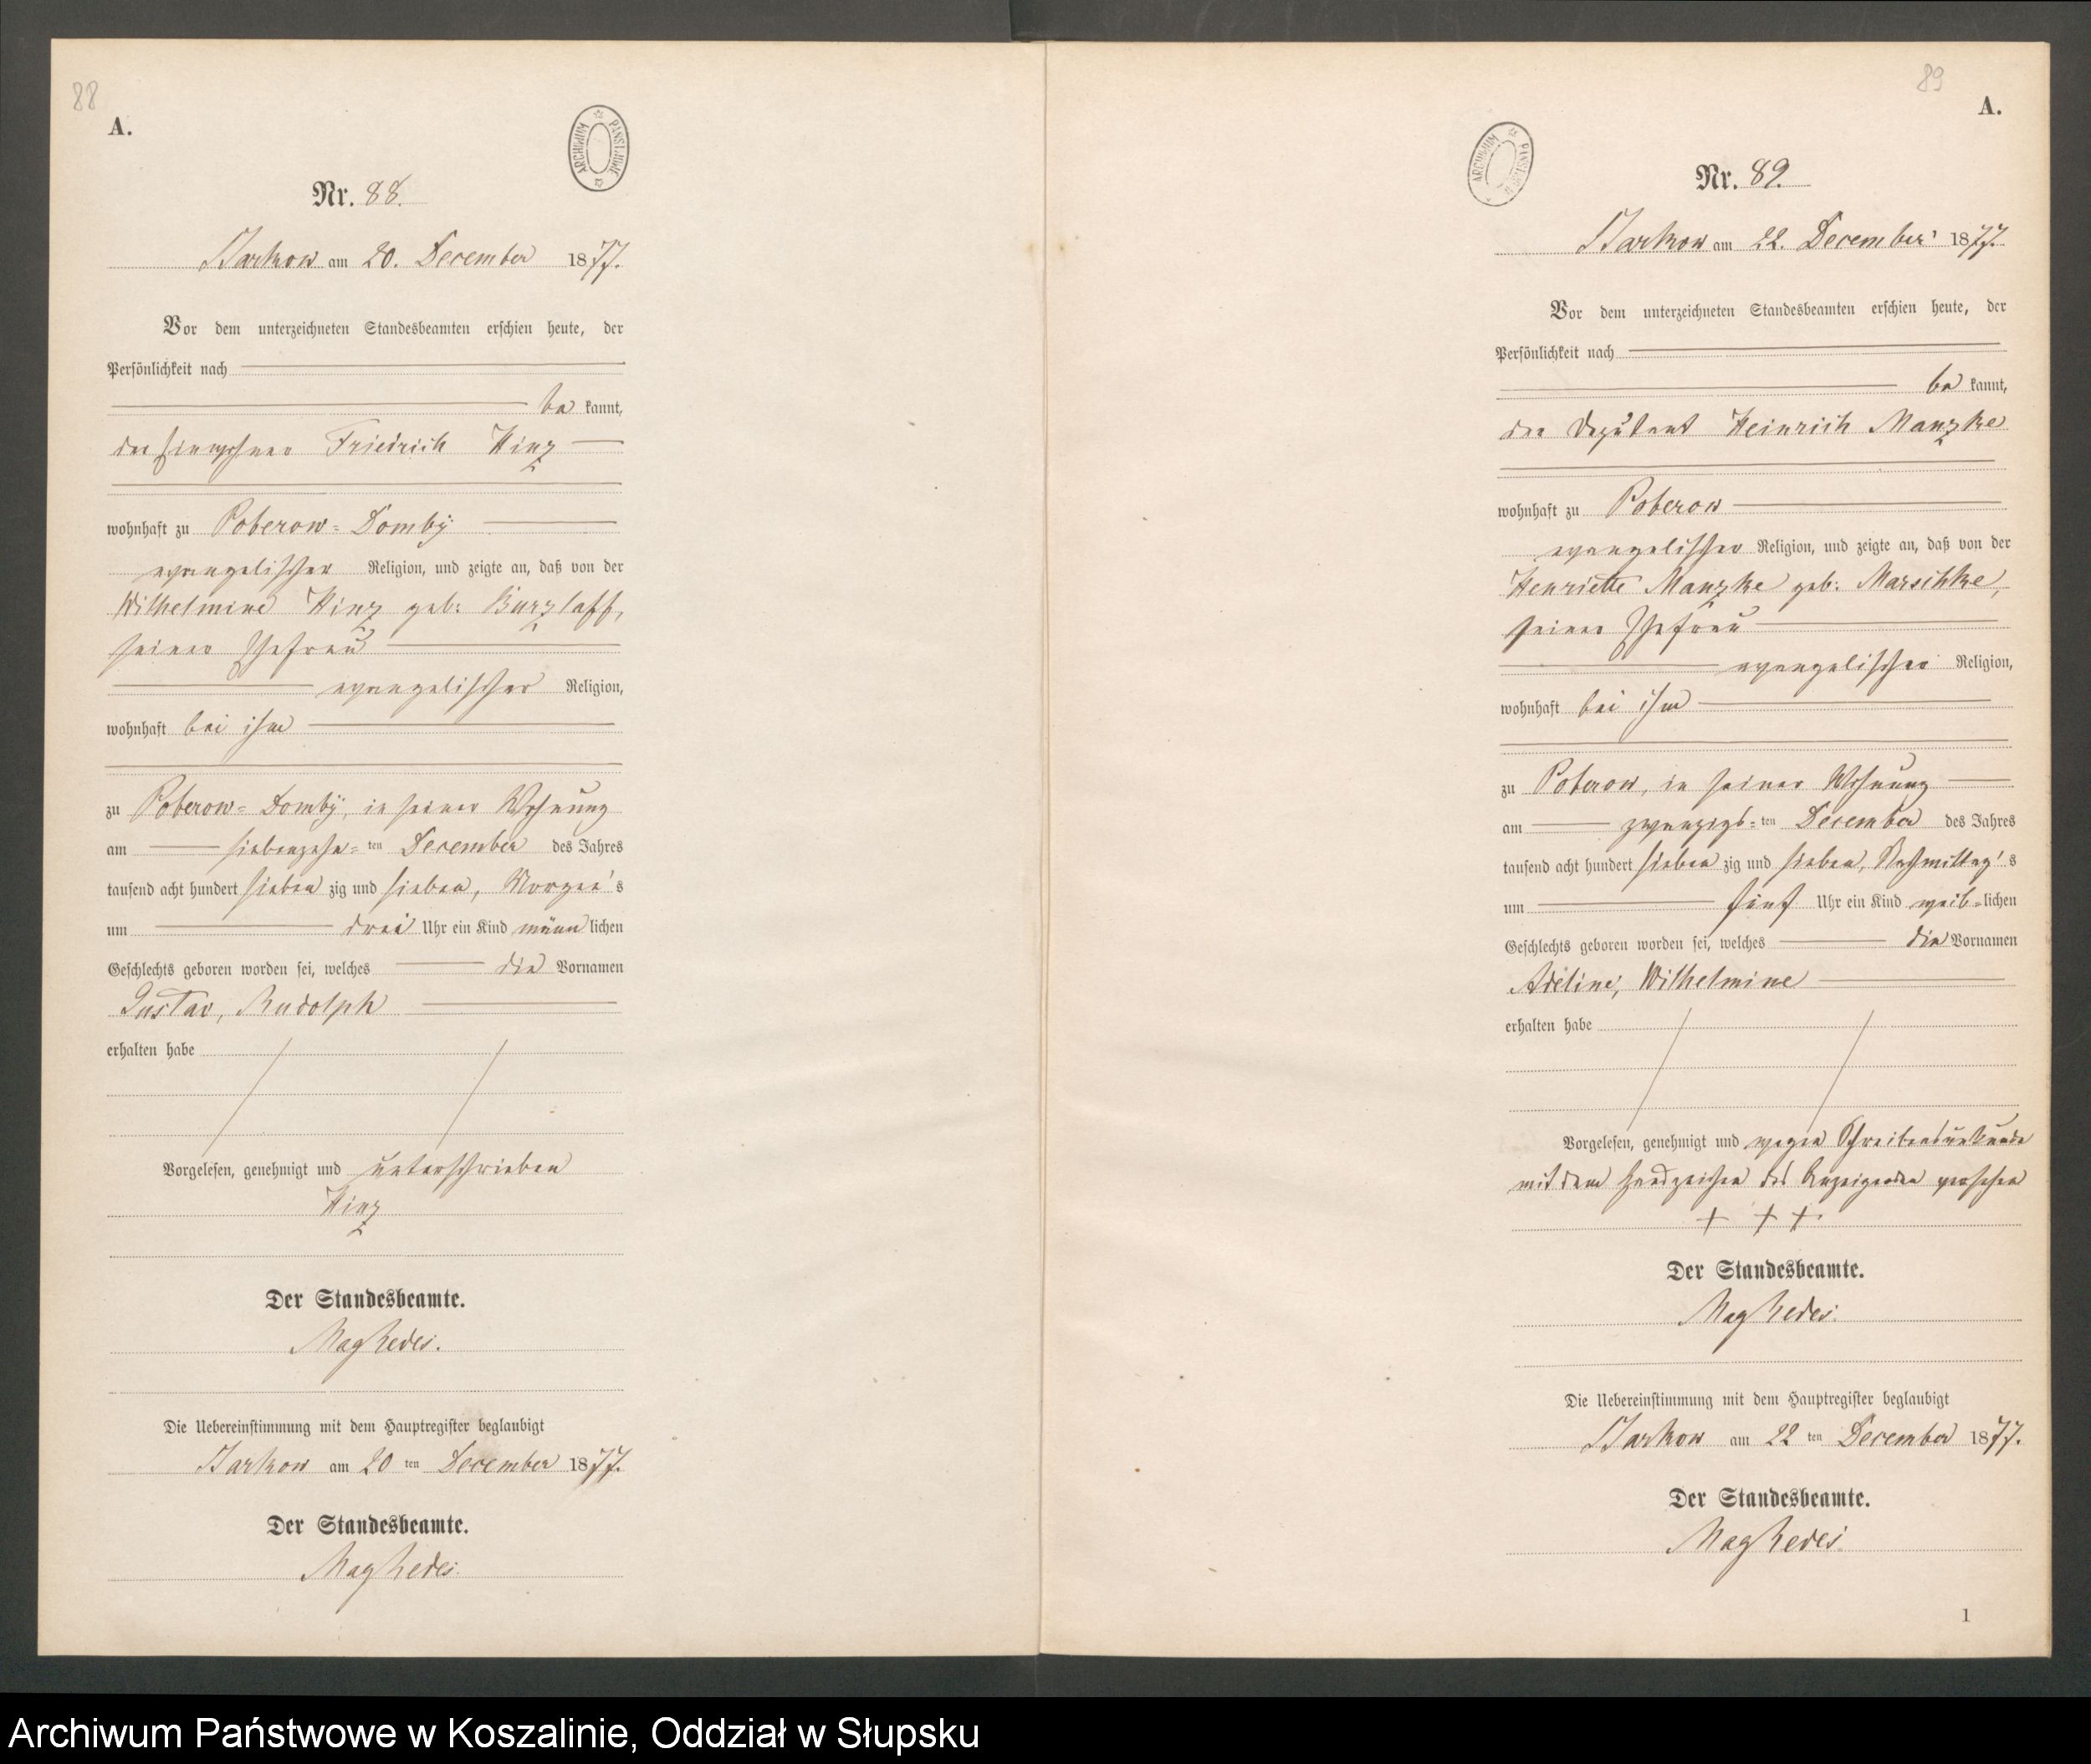 88
A.
ARCHIWUM PAŃSTWOWE
Nr. 88.
Barkow am 20. December 1877.
Vor dem unterzeichneten Standesbeamten erschien heute, der
Persönlichkeit nach
be kannt,
der Einwohner Friedrich Hinz
wohnhaft zu Poberow-Domby
evangelischer Religion, und zeigte an, daß von der
Wilhelmine Hinz geb: Burzlaff,
seiner Ehefrau
evangelischer Religion,
wohnhaft bei ihm
zu Poberow-Domby, in seiner Wohnung
am siebenzehn-ten December des Jahres
tausend acht hundert sieben zig und sieben, Morgen's
um drei Uhr ein Kind männ lichen
Geschlechts geboren worden sei, welches die Vornamen
Gustav, Rudolph
erhalten habe
Vorgelesen, genehmigt und unterschrieben
Hinz
Der Standesbeamte.
Die Uebereinstimmung mit dem Hauptregister beglaubigt
Barkow am 20 ten December 1877.
Der Standesbeamte.
89
A.
ARCHIWUM
Nr. 89.
Barkow am 22. December 1877.
Vor dem unterzeichneten Standesbeamten erschien heute, der
Persönlichkeit nach
be kannt,
der Deputant Heinrich Manzke
wohnhaft zu Poberow
evangelischer Religion, und zeigte an, daß von der
Henriette Manzke geb: Marschke,
seiner Ehefrau
evangelischer Religion,
wohnhaft bei ihm
zu Poberow, in seiner Wohnung
am zwanzigs-ten December des Jahres
tausend acht hundert sieben zig und sieben, Nachmittag's
um fünf Uhr ein Kind weib-lichen
Geschlechts geboren worden sei, welches die Vornamen
Adeline, Wilhelmine
erhalten habe
Vorgelesen, genehmigt und wegen Schreibensunkunde
mit dem Handzeichen des Anzeigenden versehen
+ + +
Der Standesbeamte.
Die Uebereinstimmung mit dem Hauptregister beglaubigt
Barkow am 22 ten December 1877.
Der Standesbeamte.
1
Archiwum Państwowe w Koszalinie, Oddział w Słupsku